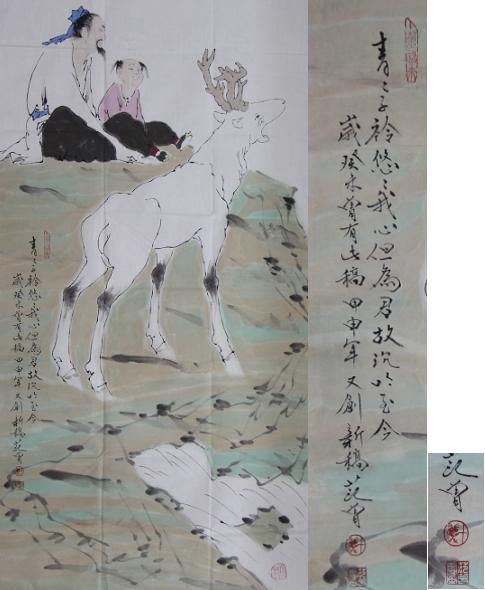 青〻子衿悠〻我心但為君故沉吟至今
歲癸未嘗有此稿甲申年又創新稿范曾
青〻子衿悠〻我心但為君故沉吟至今
歲癸未嘗有此稿甲申年又創新稿范曾
范曾